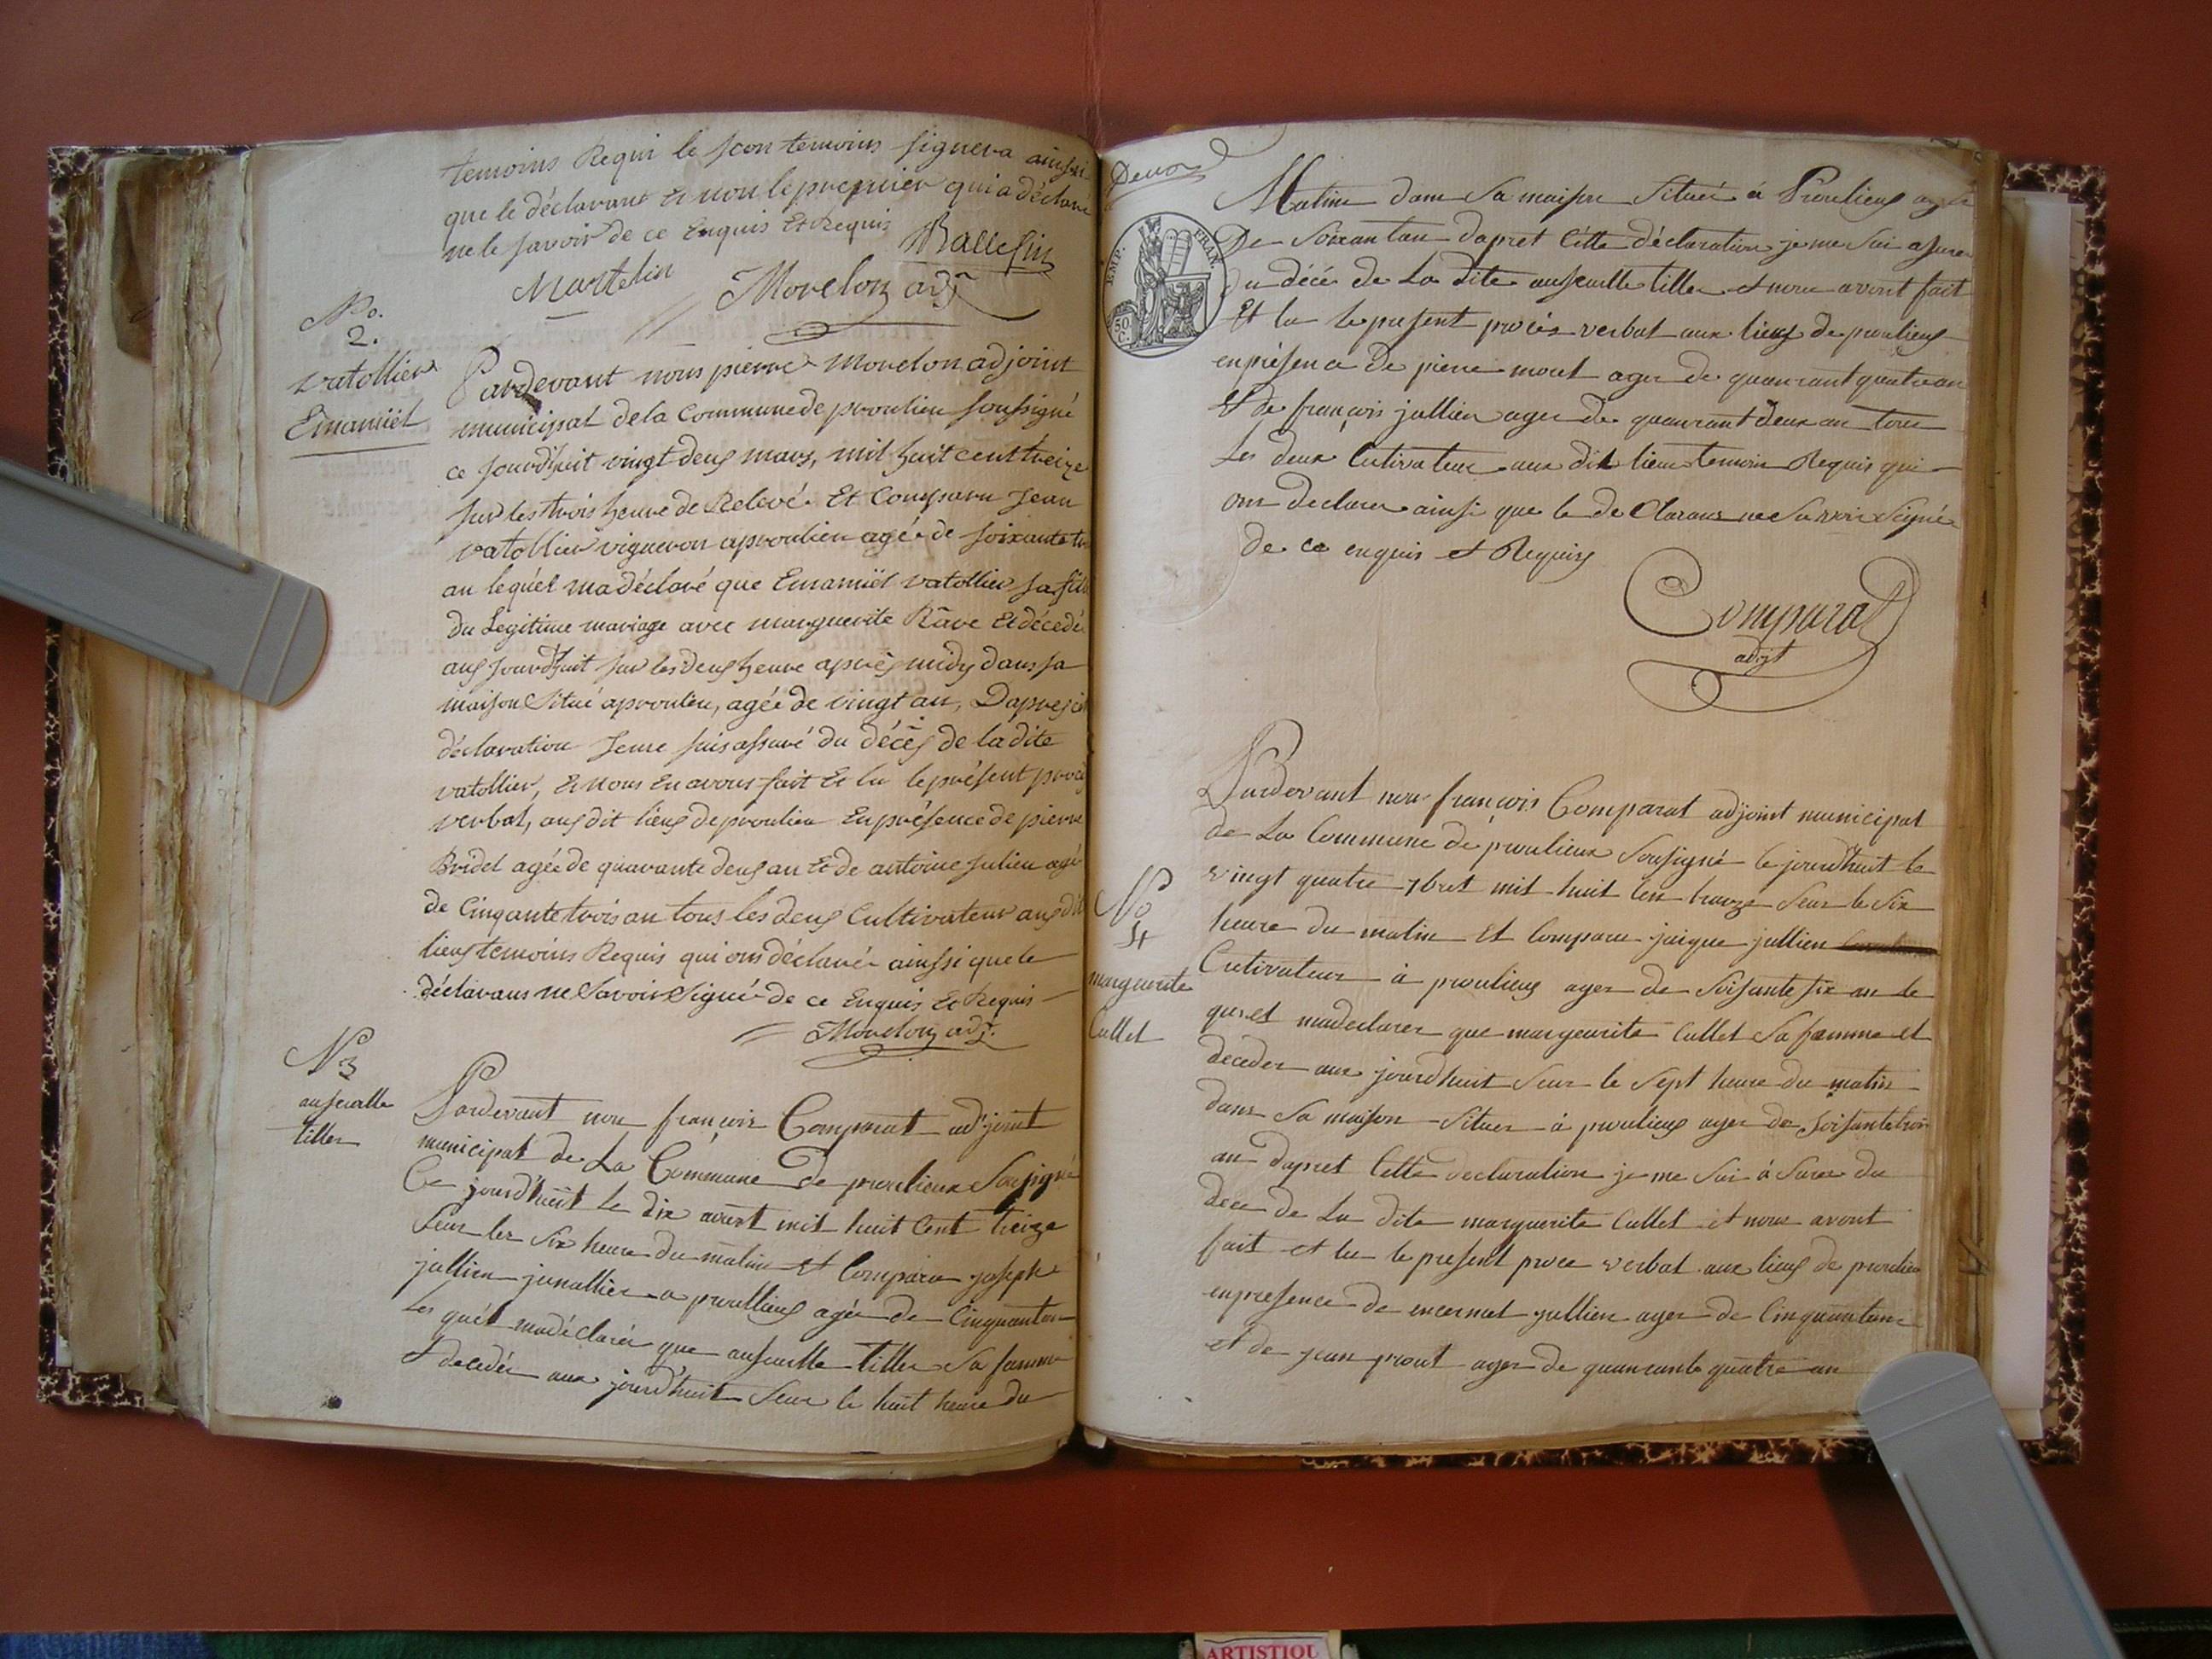 temoins Requi le scon temoins signera ainssi
que le déclarant Et non le premier qui a déclare
ne le savoir de ce Enquis Et Requis
Martelin
Morelon adj
No.
2.
vatollier
Emamiël
Pardevant nous pierre Morelon adjoint
municipal de la Commune de proulieu soussigné
ce jourd'huit vingt deux mars, mil huit cent treize
sur les trois heure de Relevé. Et Comparu Jean
vatollier vigneron a proulieu agé de soixante
an lequel ma déclaré que Emamiël vatollier sa
du Legitime mariage avec marguerite Râve Et décedé
aus jourd'huit sur les deux heure après midy dans sa
maison Situé a proulieu, agée de vingt an, Dapres
déclaration Jeme suis assuré du décès de la dite
vatollier, Et nous En avons fait Et lu le présent procé
verbal, aus dit lieus de proulieu En présence de pierre
Bridel agée de quarante deux an Et de antoine Julien agé
de Cinqante trois an tous les deux Cultivateur aus dit
lieus temoins Requis qui ons déclaré ainssi que le
déclarans ne Savoir Signé de ce Enquis Et Requis
Morelon adj.
N 3
anseualle
tiller
Pardevant nou françois Comparat adjoint
municipal de La Commune de proulieux Sousigné
Ce jourd'huit le dix avout mil huit Cent treize
Seur les Six heure du matin et Comparu joseph
jullien a proullieus agée de Cinquant
Les quel madéclarée que tiller Sa famme
et decedée aux jourd'huit Seur le huit heure du
EMP. FRAN.
50
C.
Matin dans Sa maison Située à Proulieus
De Soixantan dapret Cette déclaration je me Sui asurer
Du décé de La dite tiller et nou avont fait
Et lu le present procés verbal aux lieus de proulieus
en présence de piere mout ager de quarrant quatre an
Et de françois jullien ager de quarrant deux an tous
Les deux Cutivateur aux dit lieu temoin Requis qui
ons declarer ainsi que le de Claraus ne Savoir Signé
de ce enquis et Requis
Comparat
adjt
No
4
marguerite
Cullet
Pardevant nou françois Comparat adjoint municipal
de La Commune de proulieux Sousigné le jourdhuit le
vingt quatre 7bret mil huit Cen traize Seur le Six
heure du matin et Comparu jaique jullien
Cutivateur à proulieus ager de Soisante six an le
quel madeclarer que margeurite Cullet Sa famme et
deceder aux jourdhuit Seur le Sept heure du matin
dans Sa maison Situer à proulieus ager de Soisante troi
an dapret Cette declaration je me Sui à Surer du
dece de La dite marguerite Cullet et nous avont
fait et lu le present proce verbal aux lieus de proulieu
en presence de jullien ager de Cinquantan
et de jean prout ager de quarrante quatre an
ARTISTIQU